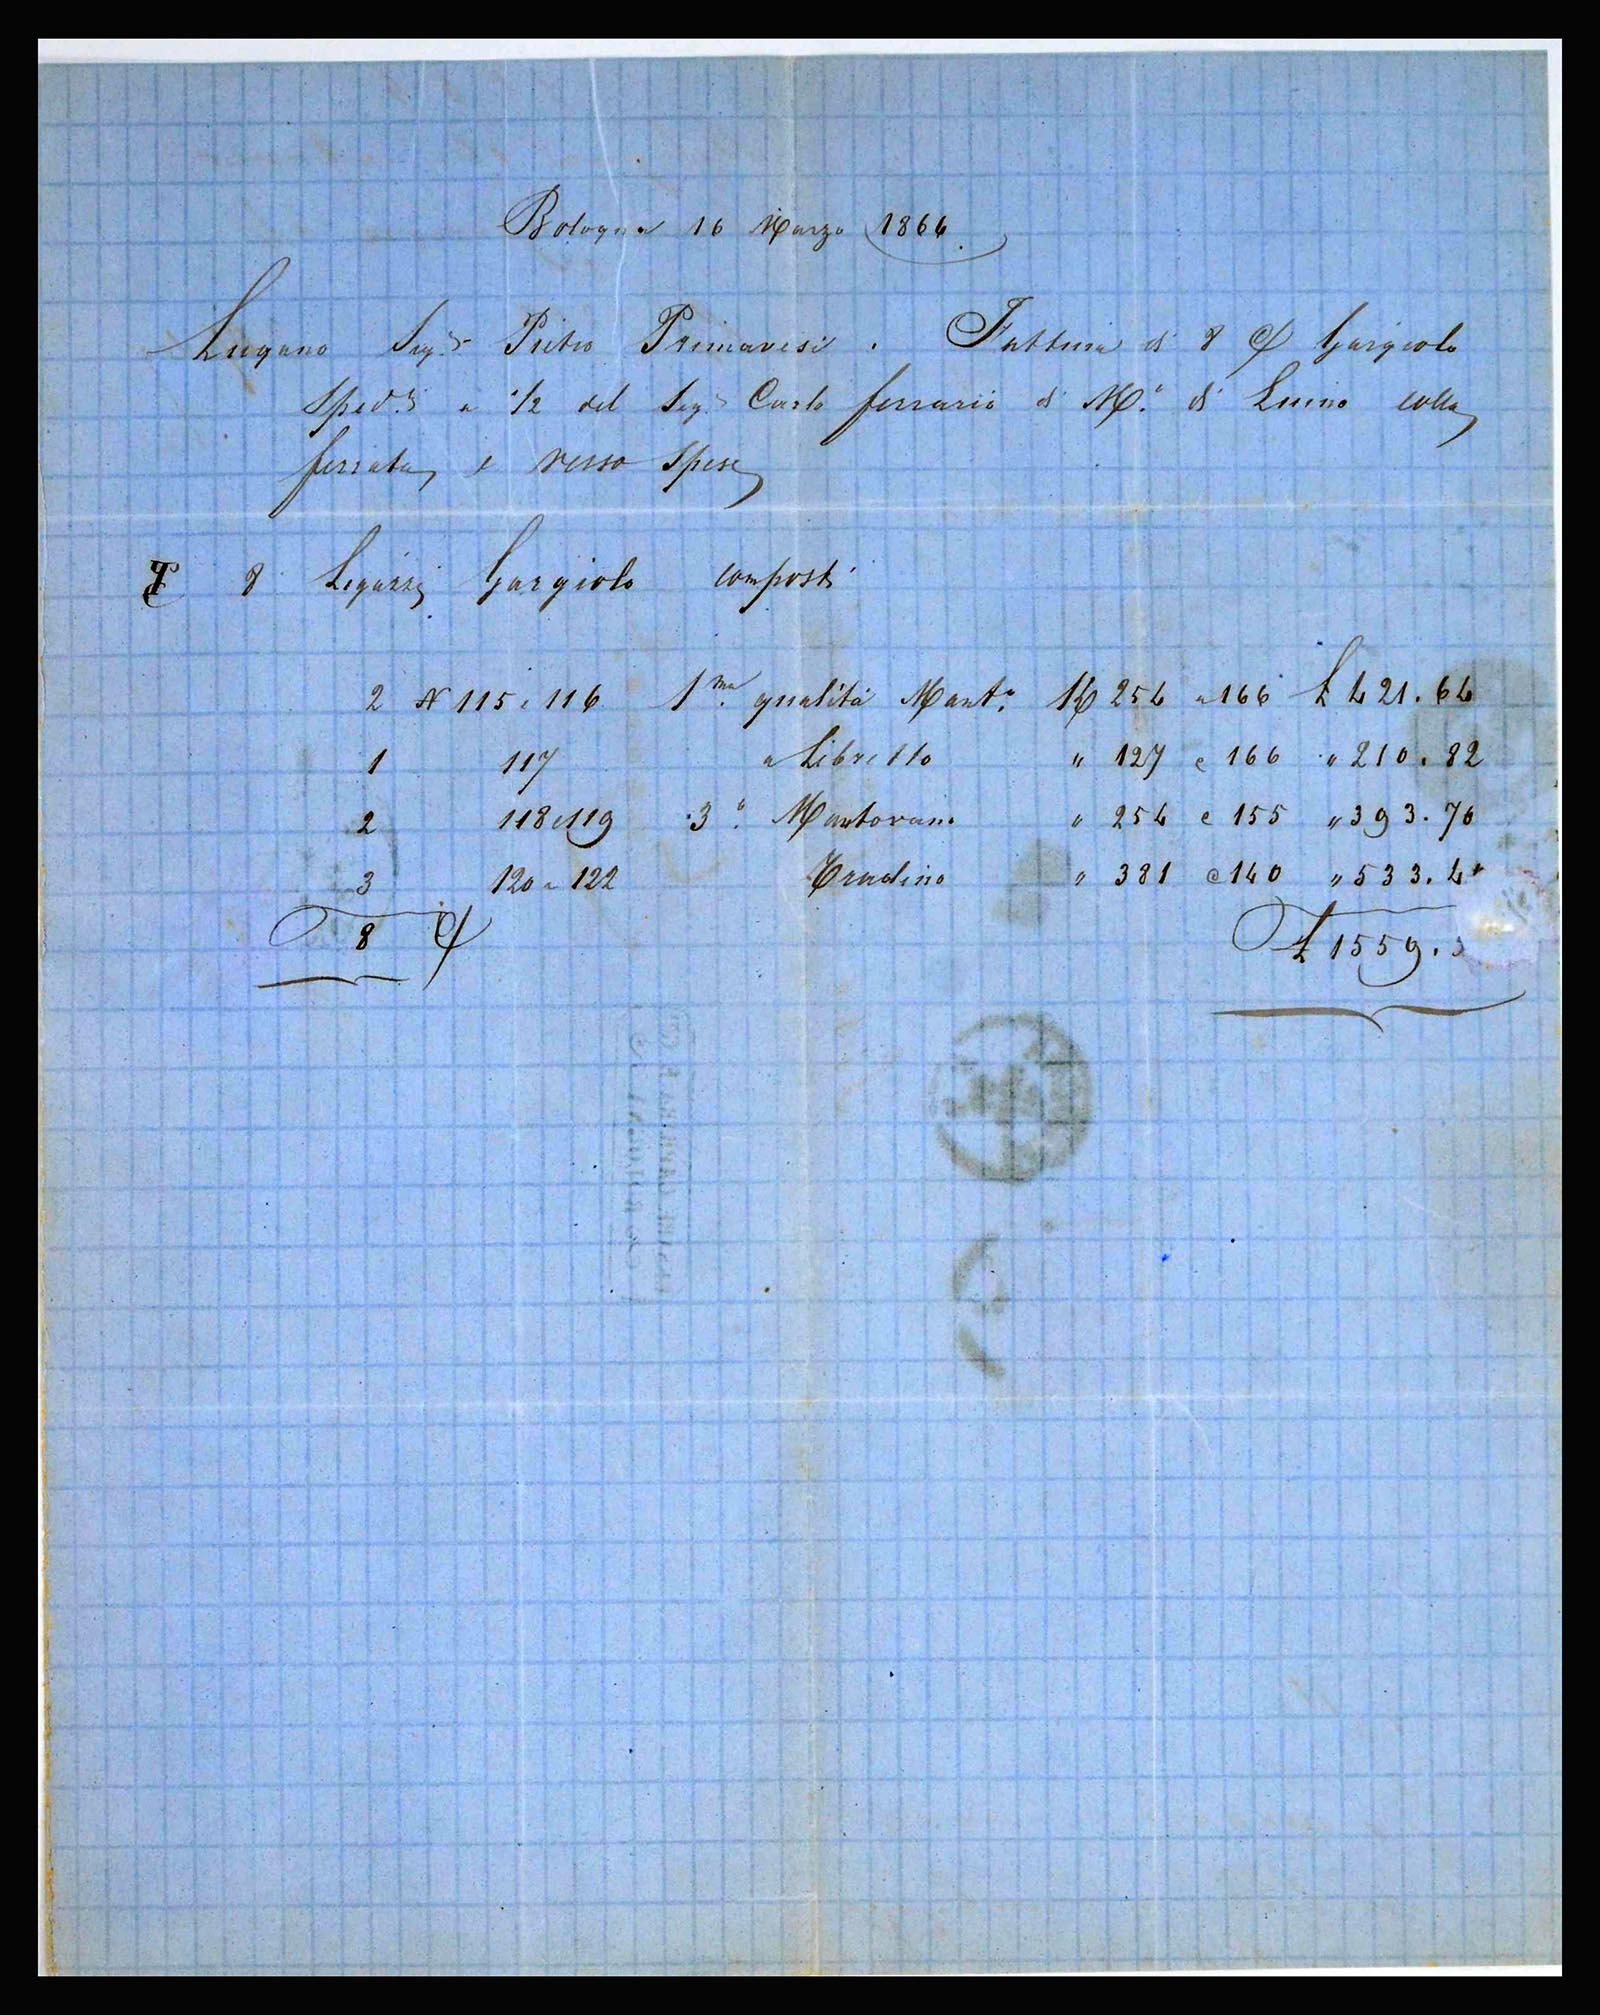 Bologna 16 Marzo 1864.
Lugano Sigr Pietro Primavesi . Fattura di 8 C/ Gargiolo
sped.i a 1/2 del Sigr Carlo Ferrario di M.o di Luino colla
ferrata, e verso spese
8 Legazzi Gargiolo composti
2 N 115 e 116 1ma. qualità Mant.o K 254 a 166 £ 421.64
1 117 a Libretto " 127 e 166 " 210.82
2 118 e 119 3a. Mantovano " 254 e 155 " 393.70
3 120 a 122 " 381 e 140 " 533.4
8 C/ £ 1559.